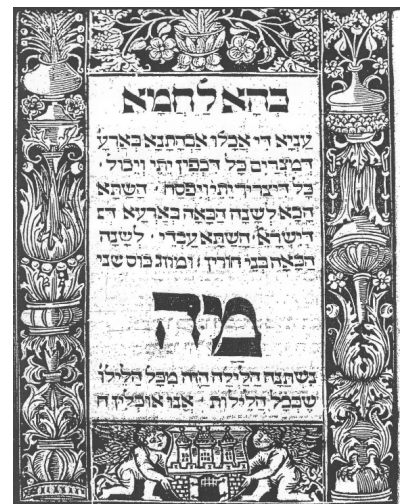 כהא לחמא
עניא די אכלו אבהתנא בארע'
דמצרים כל דכפין יתי ויכול ·
כל דיצריך יתי ויפסח · השתא
הכא לשנה הבאה בארעא
דישרא' השתא עבדי · לשנה
הבאה בני חורין : ומוזג כוס שני
מה
נשתנה הלילה הזה מכל הלילו'
שבכל הלילות · אנו אוכלין ח